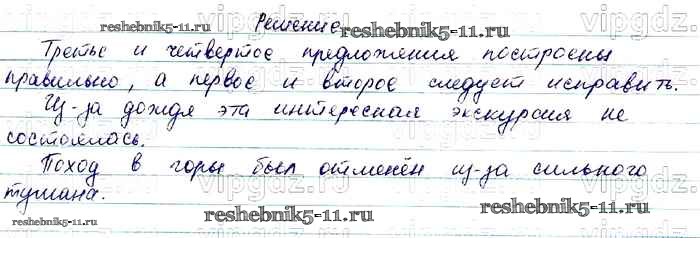 Решение
reshebnik5-11.ru
Третье и четвертое предложения построены
правильно, а первое и второе следует исправить.
Из-за дождя эта интересная экскурсия не
состоялась.
Поход в горы был отменён из-за сильного
тумана.
reshebnik5-11.ru
reshebnik5-11.ru
reshebnik5-11.ru
vipgdz.ru
vipgdz.ru
vipgdz.ru